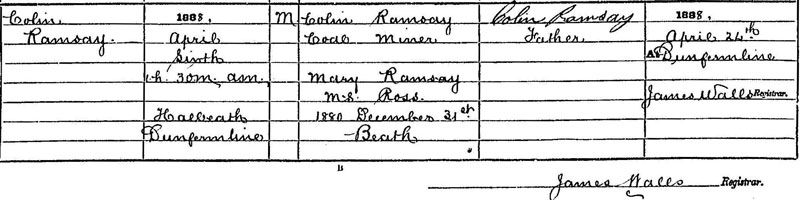 Colin
Ramsay.
1888.
April
Sixth
1h. 30m. am.
Halbeath
Dunfermline
M
Colin Ramsay
Coal Miner
Mary Ramsay
M.S. Ross.
1880 December 31st
Beath
Colin Ramsay
Father
1888.
April 24th
At Dunfermline
James Walls Registrar.
B
James Walls Registrar.